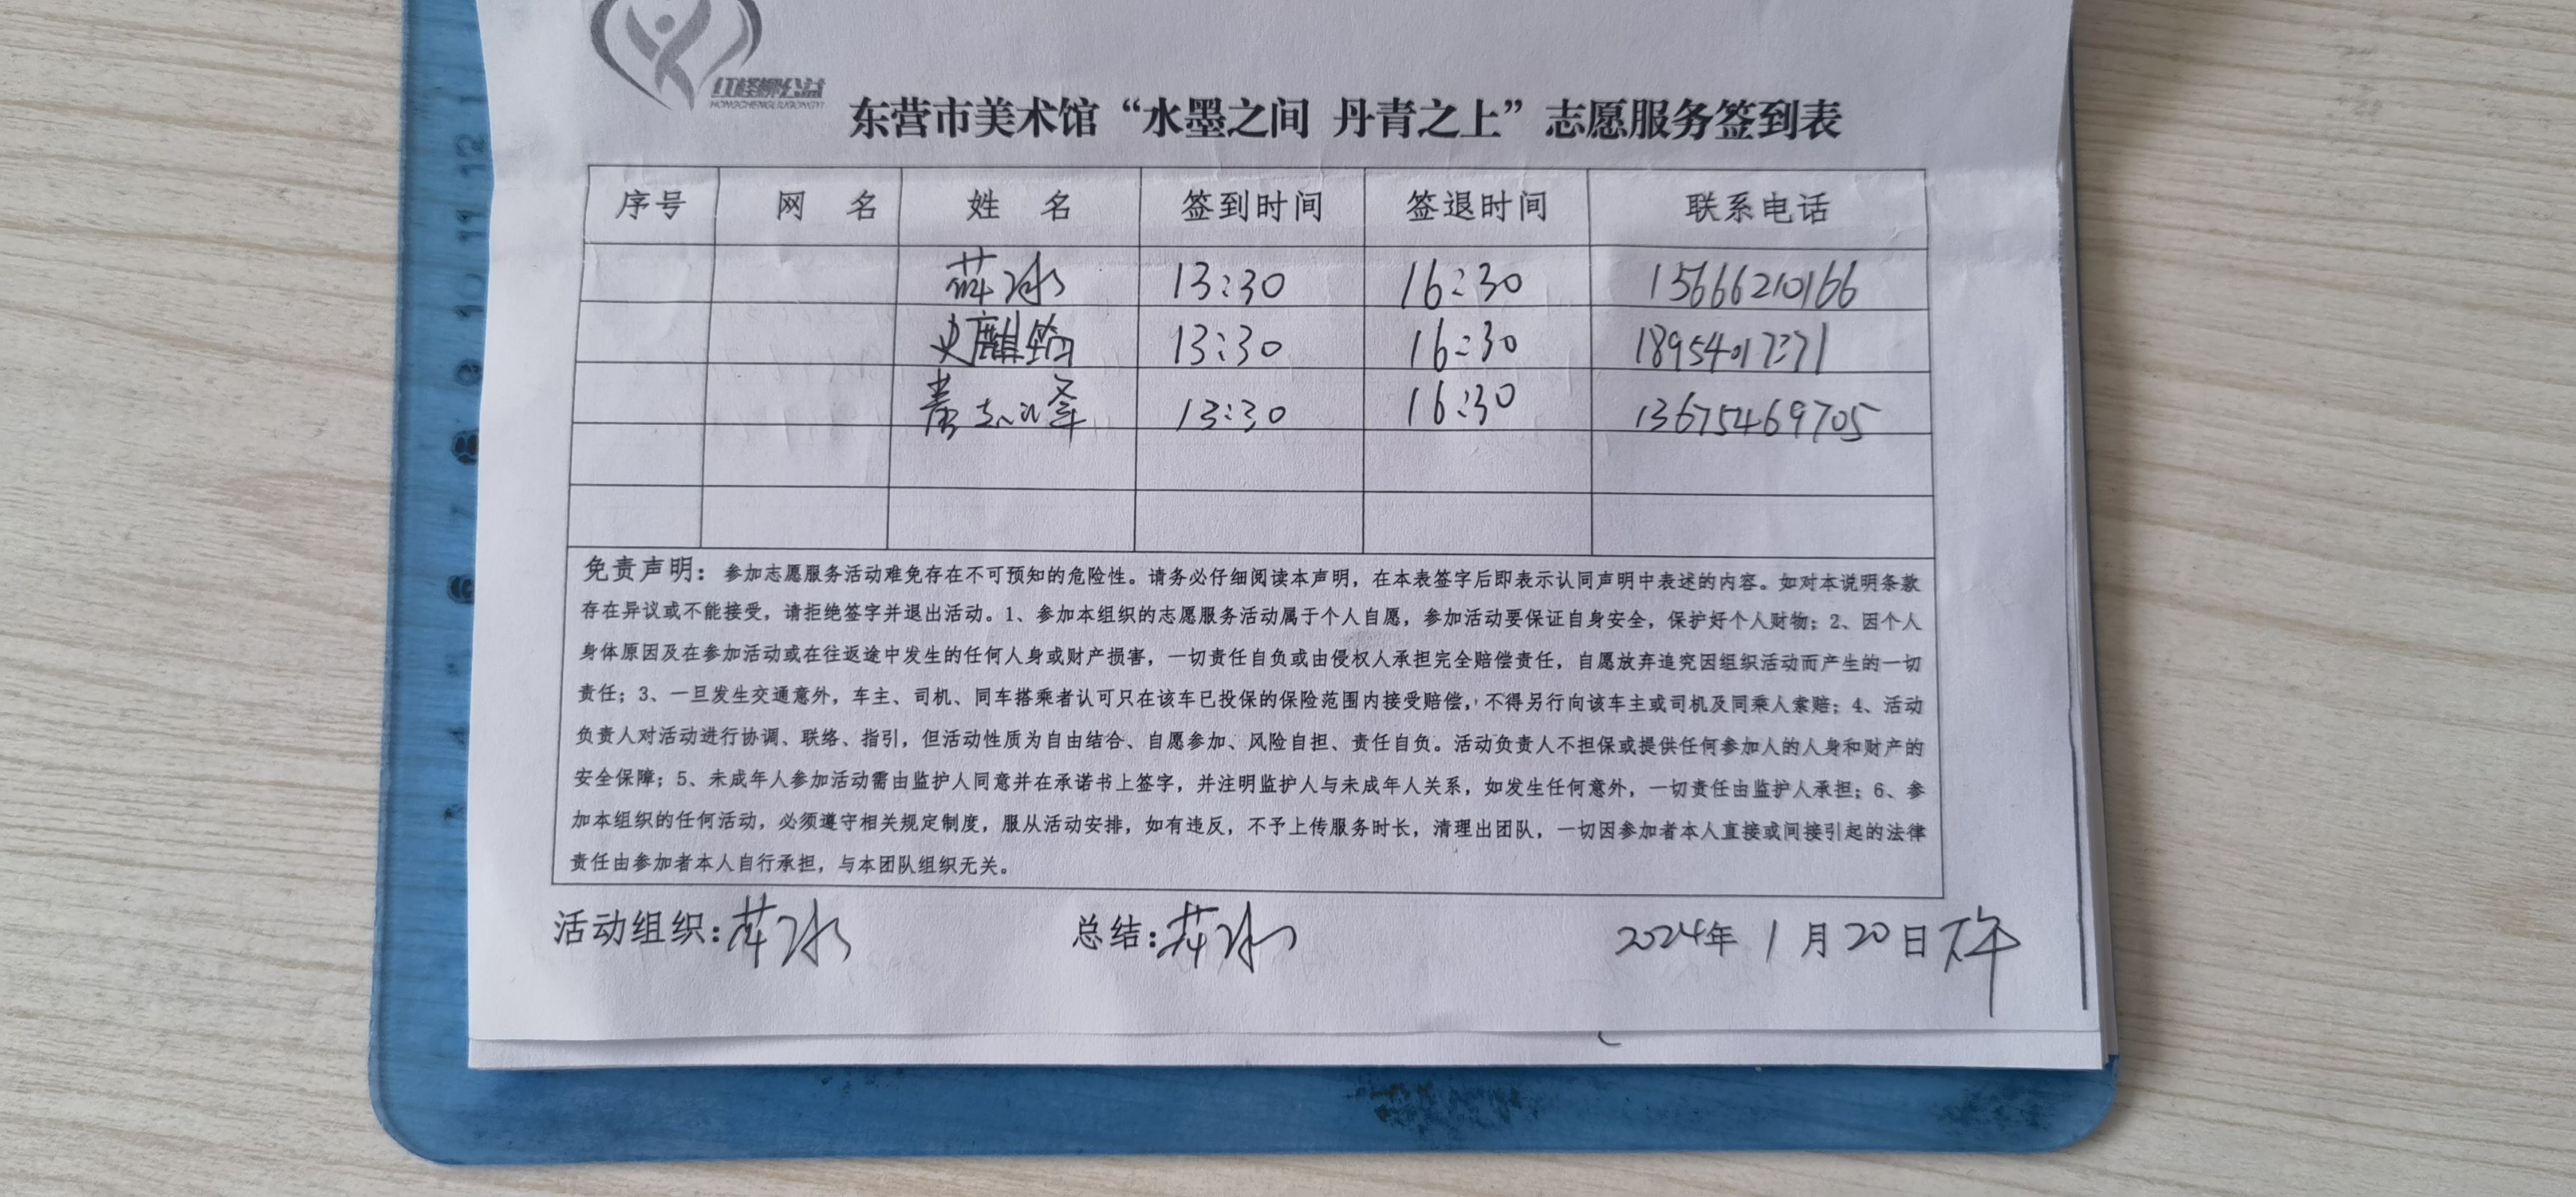 红柽柳公益
HONGCHENGLIUGONGYI
东营市美术馆“水墨之间 丹青之上”志愿服务签到表
序号 网 名 姓 名 签到时间 签退时间 联系电话
薛冰 13:30 16:30 15666210166
史麒筠 13:30 16:30
13:30 16:30 13675469705
免责声明：参加志愿服务活动难免存在不可预知的危险性。请务必仔细阅读本声明，在本表签字后即表示认同声明中表述的内容。如对本说明条款
存在异议或不能接受，请拒绝签字并退出活动。1、参加本组织的志愿服务活动属于个人自愿，参加活动要保证自身安全，保护好个人财物；2、因个人
身体原因及在参加活动或在往返途中发生的任何人身或财产损害，一切责任自负或由侵权人承担完全赔偿责任，自愿放弃追究因组织活动而产生的一切
责任；3、一旦发生交通意外，车主、司机、同车搭乘者认可只在该车已投保的保险范围内接受赔偿，不得另行向该车主或司机及同乘人索赔；4、活动
负责人对活动进行协调、联络、指引，但活动性质为自由结合、自愿参加、风险自担、责任自负。活动负责人不担保或提供任何参加人的人身和财产的
安全保障；5、未成年人参加活动需由监护人同意并在承诺书上签字，并注明监护人与未成年人关系，如发生任何意外，一切责任由监护人承担；6、参
加本组织的任何活动，必须遵守相关规定制度，服从活动安排，如有违反，不予上传服务时长，清理出团队，一切因参加者本人直接或间接引起的法律
责任由参加者本人自行承担，与本团队组织无关。
活动组织：薛冰 总结：薛冰 2024年1月20日下午